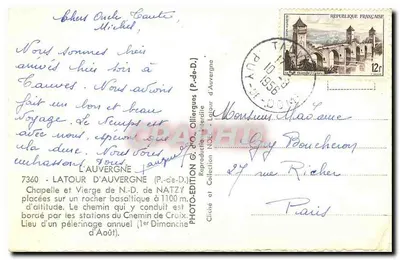 Chers Oncle, Tante
Michel,
Nous sommes bien
arrivés hier soir à
Tauves. Nous avons
fait un bon et beau
voyage. Le temps est
avec nous,
Nous vous
embrassons tous.
L'AUVERGNE
7360 - LATOUR D'AUVERGNE (P.-de-D.)
Chapelle et Vierge de N.-D. de NATZY
placées sur un rocher basaltique à 1100 m.
d'altitude. Le chemin qui y conduit est
bordé par les stations du Chemin de Croix.
Lieu d'un pèlerinage annuel (1er Dimanche
d'Août).
PHOTO-EDITION G. d'O. Olliergues (P.-de-D.)
Reproduction interdite
REPUBLIQUE FRANÇAISE
12f
1956
PUY-DE-DOME
Monsieur Madame
Guy Boucheron
27 rue Richer
Paris